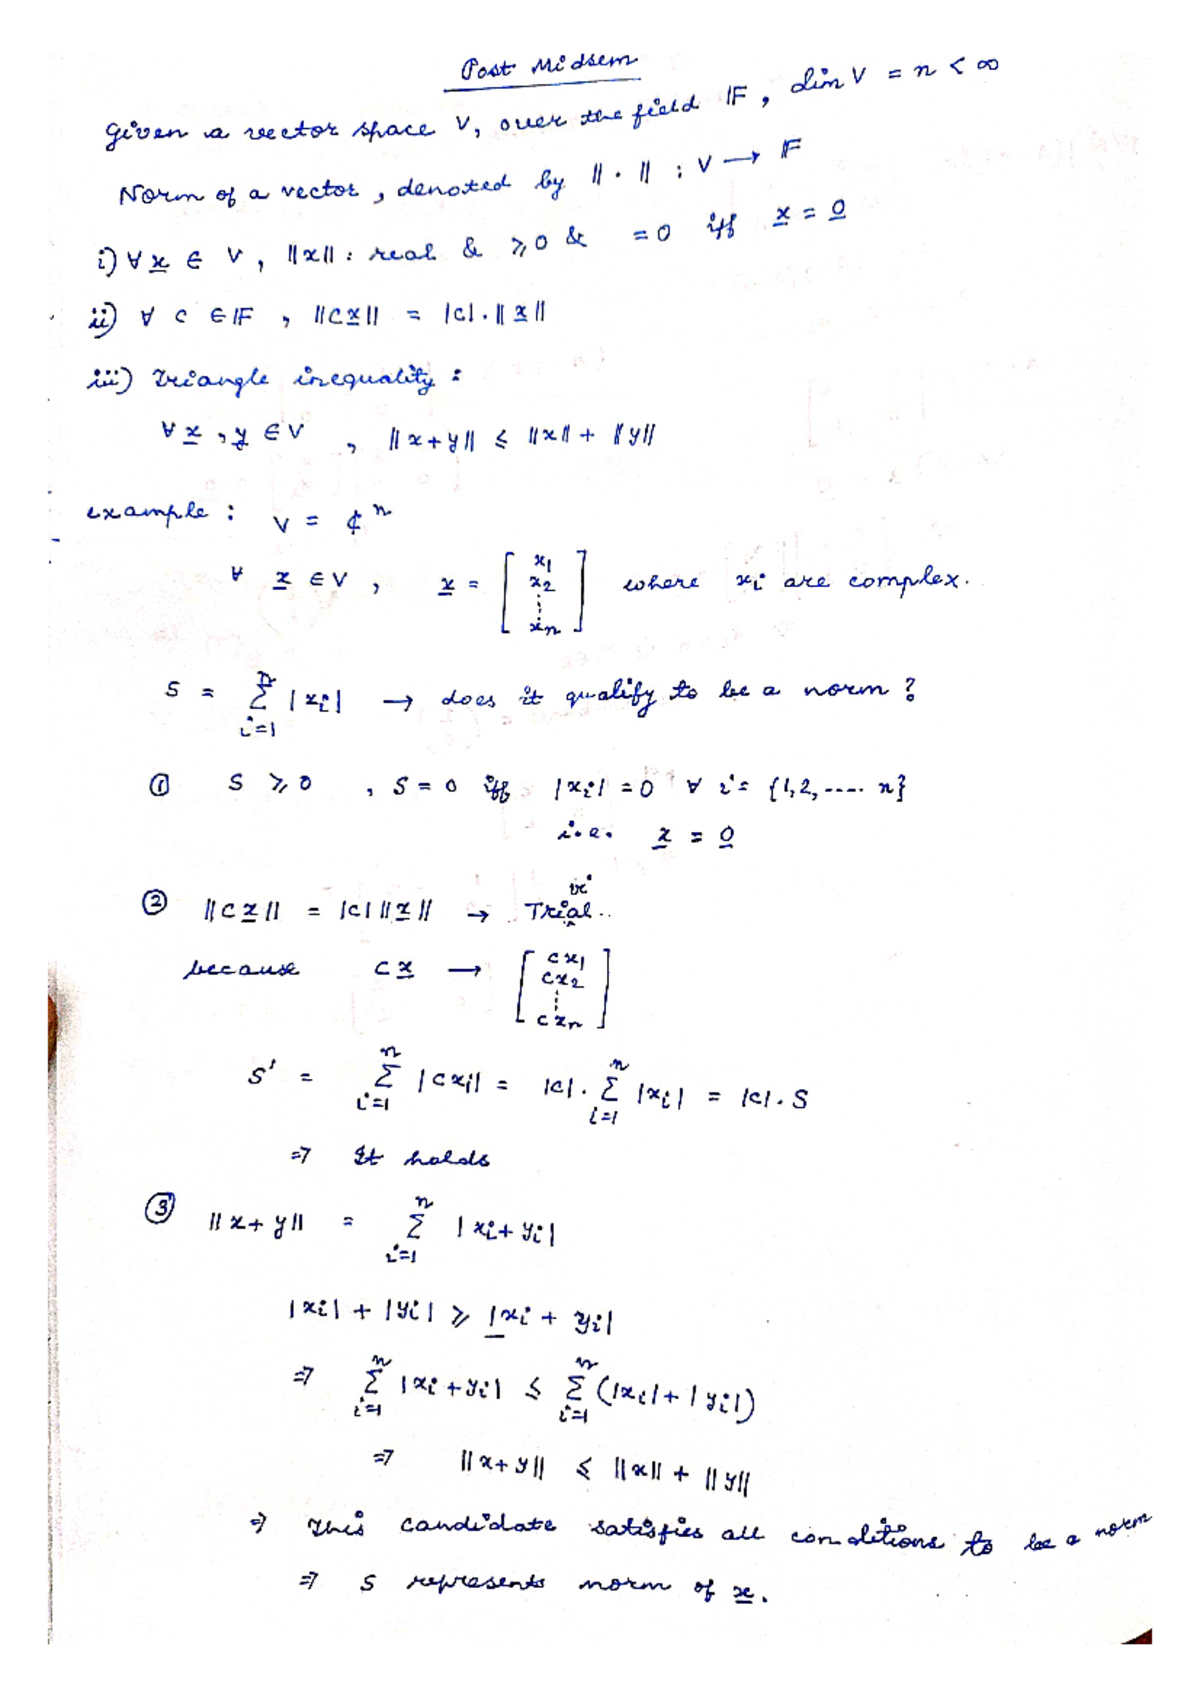 Post Midsem
Given a vector space V, over the field 𝔽, dim V = n < ∞
Norm of a vector, denoted by ||·|| : V → 𝔽
i) ∀ x ∈ V, ||x|| : real & ⩾ 0 & = 0 iff x = 0
ii) ∀ c ∈ 𝔽, ||cx|| = |c|.||x||
iii) Triangle inequality :
∀ x, y ∈ V, ||x+y|| ≤ ||x|| + ||y||
example : V = ₵ⁿ
∀ x ∈ V, x = [x₁ x₂ ⋮ xₙ] where xᵢ are complex.
S = n Σ i=1 |xᵢ| → does it qualify to be a norm?
① S ⩾ 0, S = 0 iff |xᵢ| = 0 ∀ i = {1,2,.... n}
i.e. x = 0
② ||cx|| = |c| ||x|| → Trivial..
because cx → [cx₁ cx₂ ⋮ cxₙ]
S' = n Σ i=1 |cxᵢ| = |c|. n Σ i=1 |xᵢ| = |c|.S
⇒ It holds
③ ||x+y|| = n Σ i=1 |xᵢ+yᵢ|
|xᵢ| + |yᵢ| ⩾ |xᵢ + yᵢ|
⇒ n Σ i=1 |xᵢ+yᵢ| ≤ n Σ i=1 (|xᵢ|+|yᵢ|)
⇒ ||x+y|| ≤ ||x|| + ||y||
⇒ This candidate satisfies all conditions to be a norm
⇒ S represents norm of x.